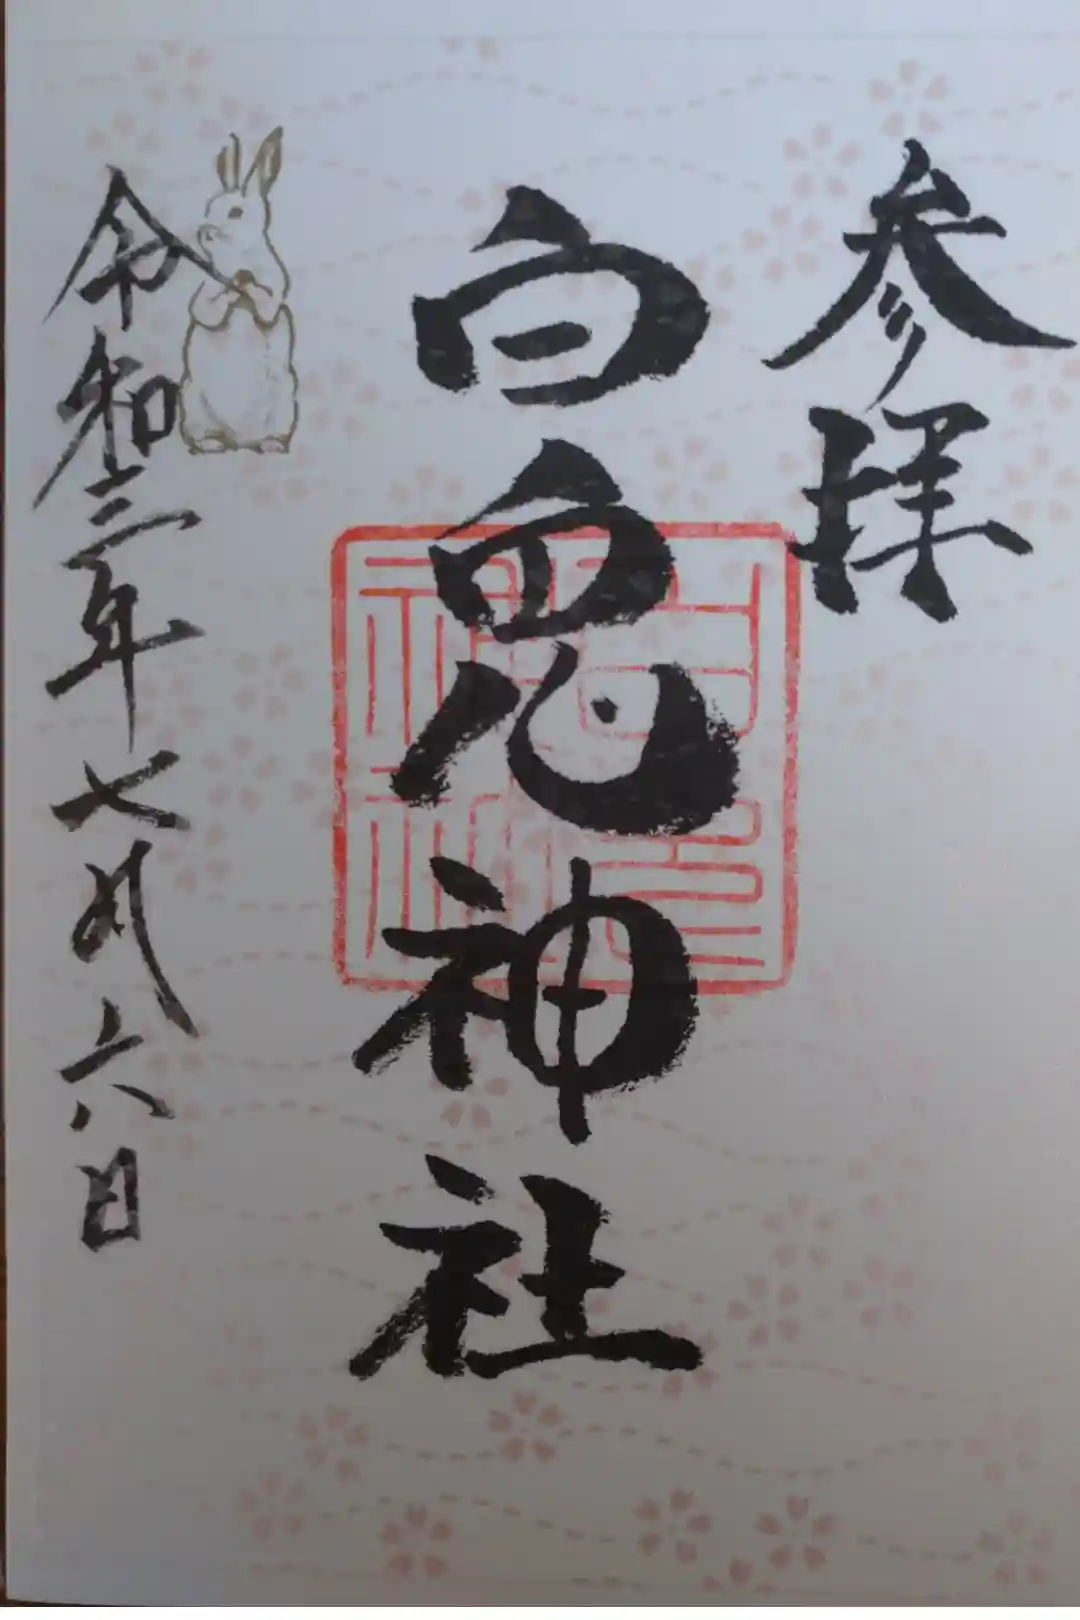 参拝
白兎神社
令和三年七月六日